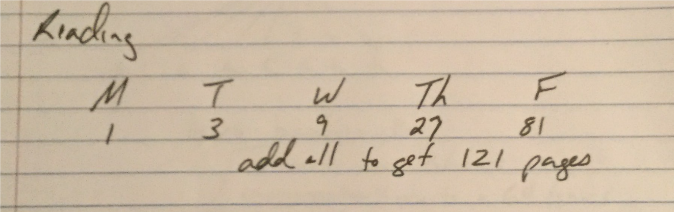 Reading
M T W Th F
1 3 9 27 81
add all to get 121 pages